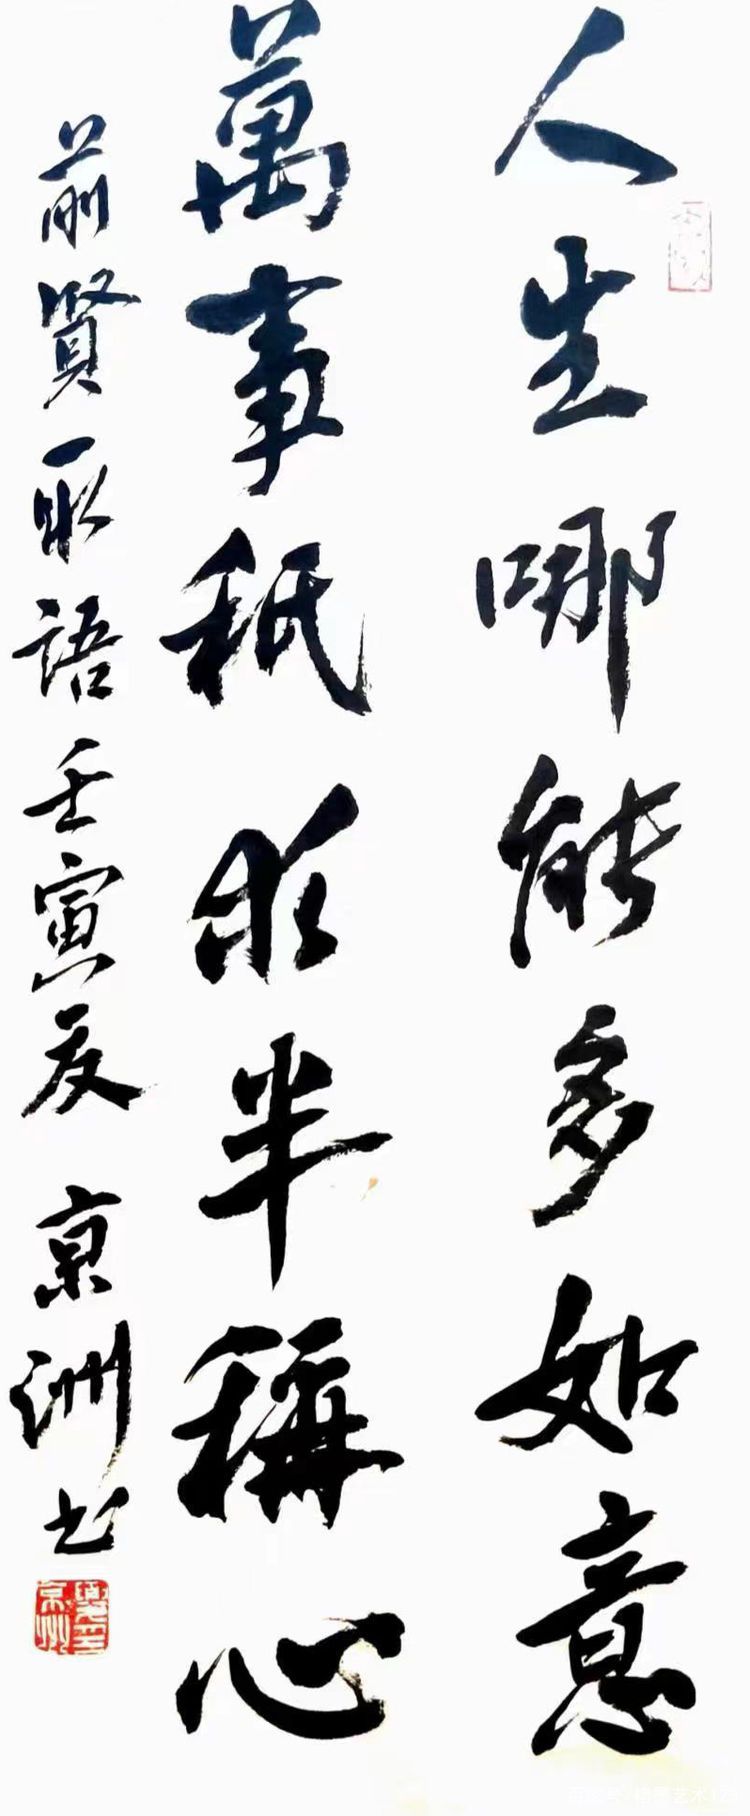 人生哪能多如意
萬事秖求半稱心
前賢聯語壬寅夏 京洲书